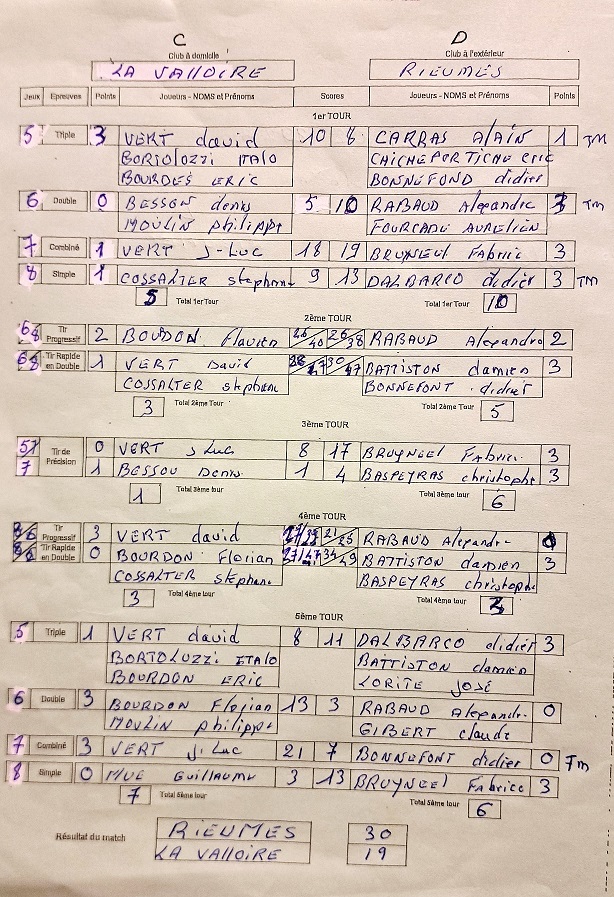 C D
Club à domicile Club à l'extérieur
LA VALLOIRE RIEUMES
Jeux Epreuves Points Joueurs - NOMS et Prénoms Scores Joueurs - NOMS et Prénoms Points
1er TOUR
5 Triple 3 VERT david 10 8 CARRAS Alain 1 TM
BORTOLOZZI ITALO CHICHEPORTICHE eric
BOURDES ERIC BONNEFOND didier
6 Double 0 BESSON denis 5 10 RABAUD Alexandre 3 TM
MOULIN philippe FOURCADE AURELIEN
7 Combiné 1 VERT J-Luc 18 19 BRUYNEEL Fabric 3
8 Simple 1 COSSALTER stephane 9 13 DALBARCO didier 3 TM
5 Total 1er Tour Total 1er Tour 10
2ème TOUR
68 Tir Progressif 2 BOURDON Flavien 26/40 26/38 RABAUD Alexandre 2
68 Tir Rapide en Double 1 VERT David 28/47 30/47 BATTISTON damien 3
COSSALTER stephane BONNEFONT didier
3 Total 2ème Tour Total 2ème Tour 5
3ème TOUR
57 Tir de Précision 0 VERT J Luc 8 17 BRUYNEEL Fabric 3
7 1 BESSON Denis 1 4 BASPEYRAS christophe 3
1 Total 3ème tour Total 3ème tour 6
4ème TOUR
Tir Progressif 3 VERT david 21/25 RABAUD Alexandre 0
Tir Rapide en Double 0 BOURDON Florian 27/47 34/49 BATTISTON damien 3
COSSALTER stephane BASPEYRAS christophe
3 Total 4ème tour Total 4ème tour 3
5ème TOUR
5 Triple 1 VERT david 8 11 DALBARCO didier 3
BORTOLUZZI ITALO BATTISTON damien
BOURDON ERIC LORITE José
6 Double 3 BOURDON Florian 13 3 RABAUD Alexandre 0
MOULIN philippe GIBERT claude
7 Combiné 3 VERT J. Luc 21 7 BONNEFONT didier 0 TM
8 Simple 0 MUE GUILLAUME 3 13 BRUYNEEL Fabrice 3
7 Total 5ème tour Total 5ème tour 6
Résultat du match RIEUMES 30
LA VALLOIRE 19